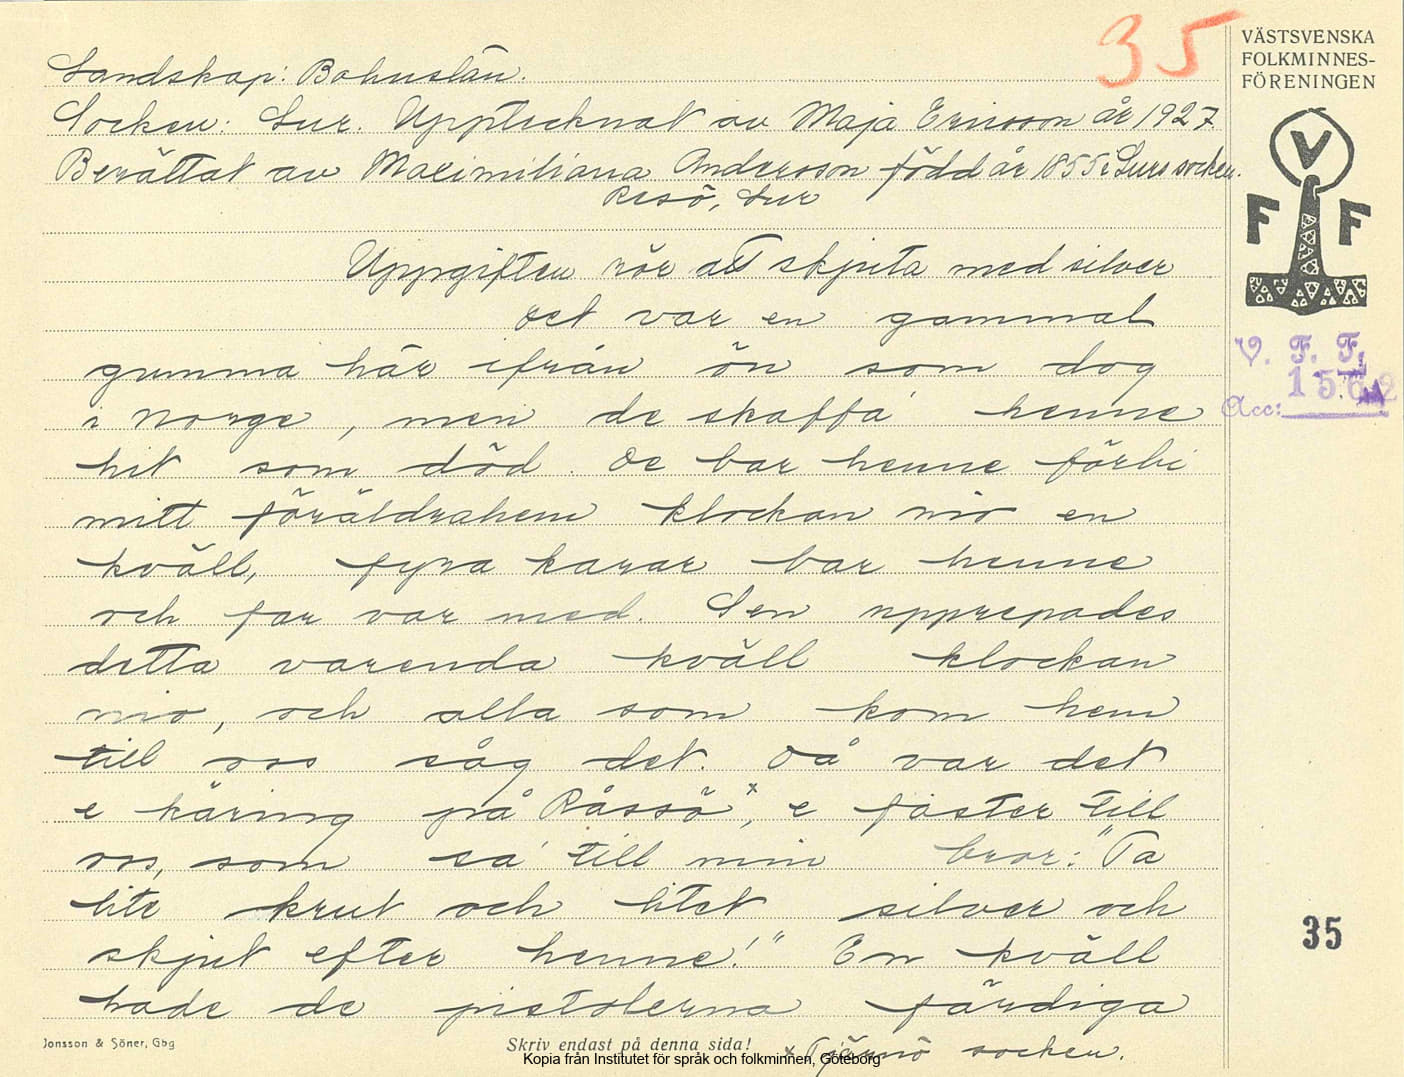 35
VÄSTSVENSKA
FOLKMINNES-
FÖRENINGEN
Landskap: Bohuslän.
Socken: Lur. Upptecknat av Maja Ericsson år 1927
Berättat av Maximiliana Anderson född år 1855 i Lurs socken.
Resö, Lur
V
F F
Uppgiften rör att skjuta med silver
Det var en gammal
gumma här ifrån ön som dog
i Norge, men de skaffa' henne
hit som död. De bar henne förbi
mitt föräldrahem klockan nio en
kväll, fyra karar bar henne
och far var med. Sen upprepades
detta varenda kväll klockan
nio, och alla som kom hem
till oss såg det. Då var det
e käring på Råssö x, e faster till
oss, som sa' till min bror: "Ta
lite krut och litet silver och
skjut efter henne!" En kväll
hade de pistolerna färdiga
V. F. F.
Acc: 1562
35
Jonsson & Söner, Gbg
Skriv endast på denna sida!
x Tjärnö socken.
Kopia från Institutet för språk och folkminnen, Göteborg